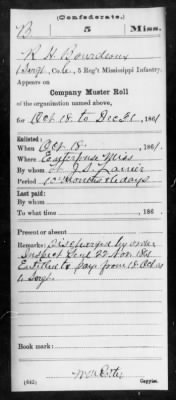 (Confederate.)
B 5 Miss.
R H Bourdeaux
Sergt, Co. , 5 Reg't Mississippi Infantry.
Appears on
Company Muster Roll
of the organization named above,
for Oct 18. to Dec 31, 1861.
Enlisted:
When Oct. 18. , 1861.
Where Enterprise Miss
By whom J. S. Lanier
Period 12 months days
Last paid:
By whom
To what time , 186 .
Present or absent
Remarks: Discharged by order
Inspect Genl 27 Nov 1861
Entitled to pay from 18 Oct as
4 Sergt.
Book mark:
(642) Copyist.